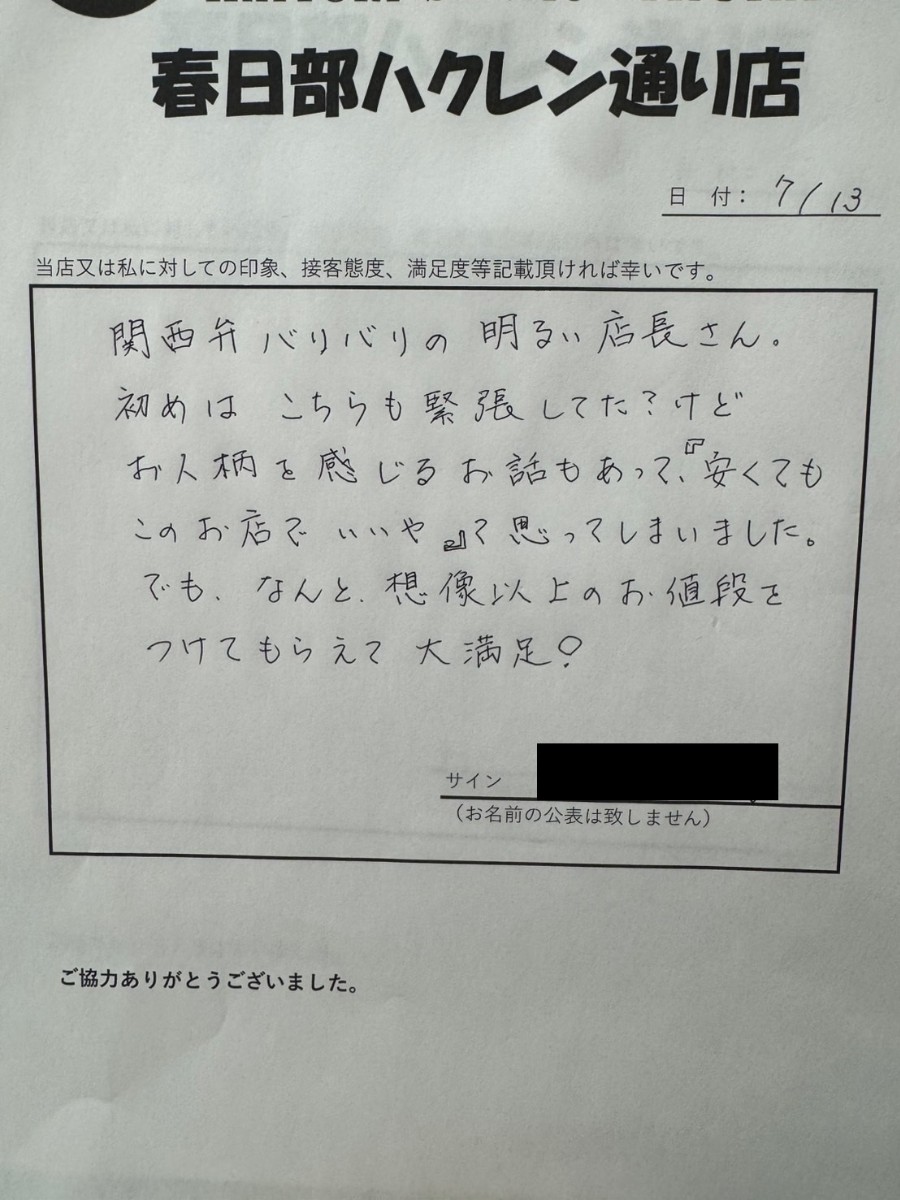 春日部ハクレン通り店
日 付： 7/13
当店又は私に対しての印象、接客態度、満足度等記載頂ければ幸いです。
関西弁バリバリの明るい店長さん。
初めは こちらも緊張してた？けど
お人柄を感じるお話もあって、『安くても
このお店でいいや』て思ってしまいました。
でも、なんと、想像以上のお値段を
つけてもらえて 大満足！
サイン
（お名前の公表は致しません）
ご協力ありがとうございました。